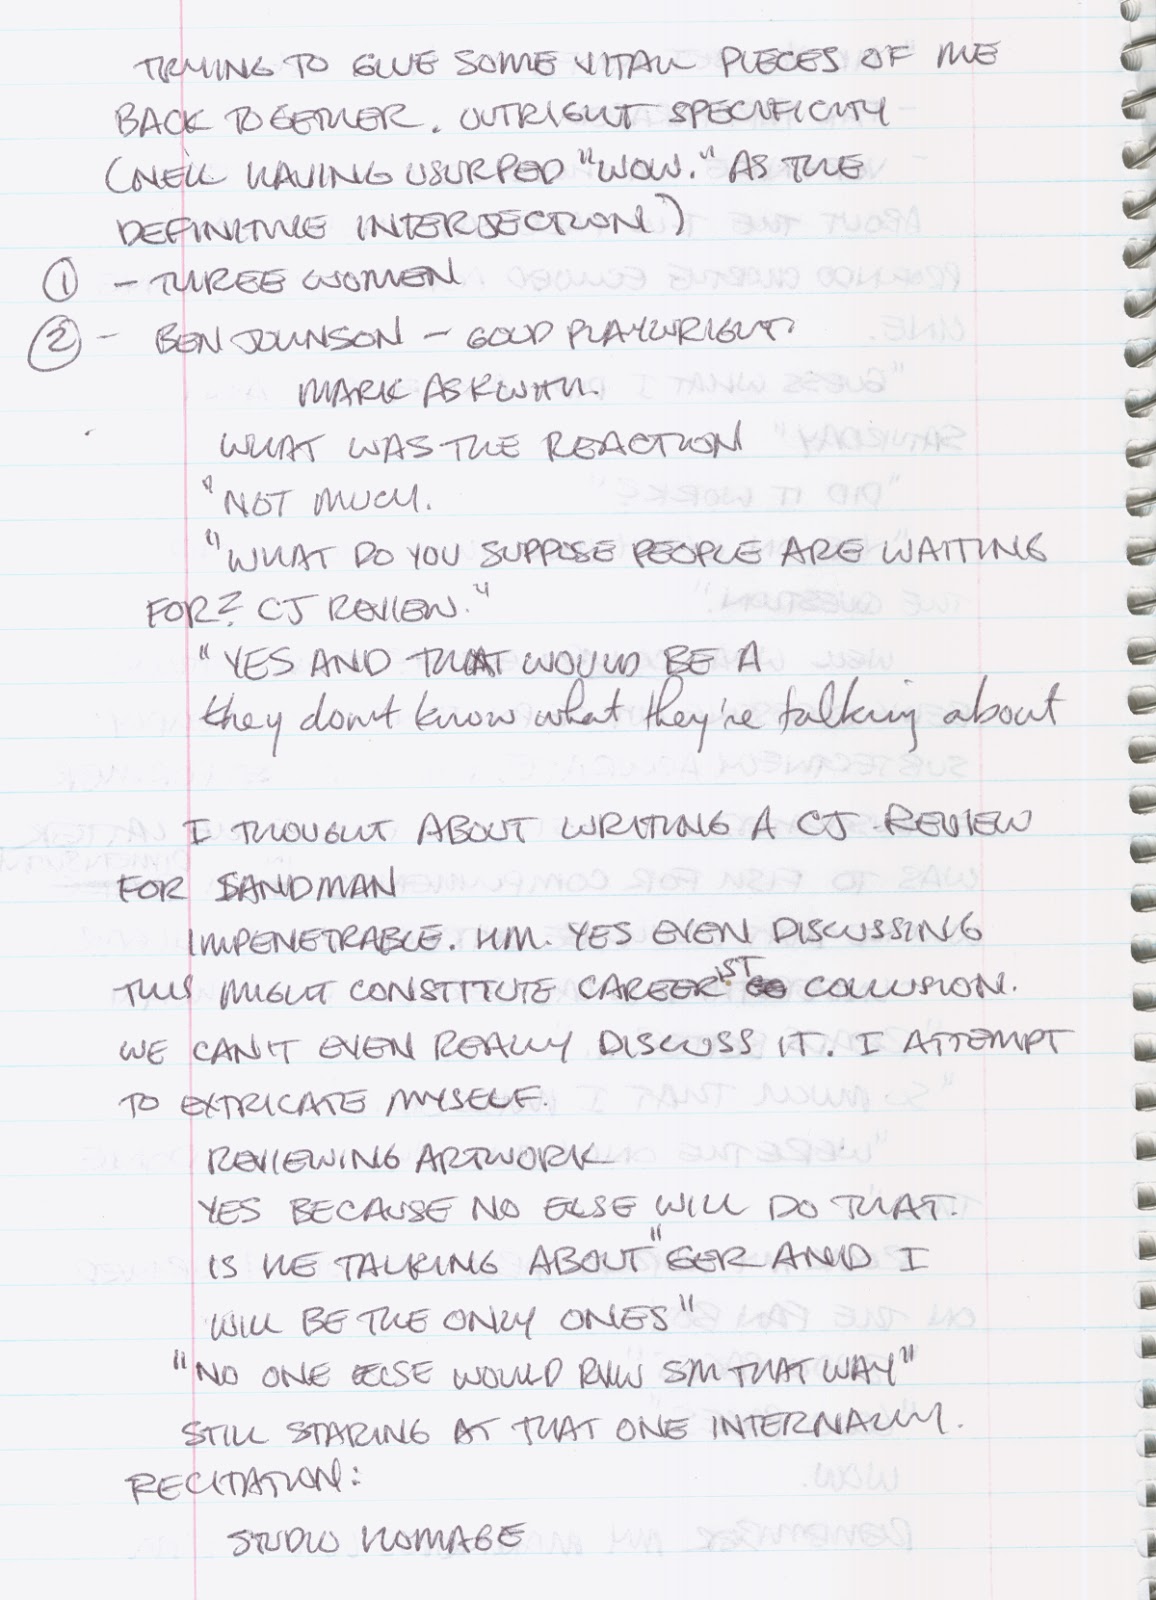 TRYING TO GLUE SOME VITAL PIECES OF ME
BACK TOGETHER. OUTRIGHT SPECIFICITY
(NEIL HAVING USURPED "WOW." AS THE
DEFINITIVE INTERJECTION)
① - THREE WOMEN
② - BEN JOHNSON - GOOD PLAYWRIGHT.
MARK ASKWITH.
WHAT WAS THE REACTION
"NOT MUCH.
"WHAT DO YOU SUPPOSE PEOPLE ARE WAITING
FOR? CJ REVIEW."
"YES AND THAT WOULD BE A
they don't know what they're talking about
I THOUGHT ABOUT WRITING A CJ REVIEW
FOR SANDMAN
IMPENETRABLE. HM. YES EVEN DISCUSSING
THIS MIGHT CONSTITUTE CAREERIST COLLUSION.
WE CAN'T EVEN REALLY DISCUSS IT. I ATTEMPT
TO EXTRICATE MYSELF.
REVIEWING ARTWORK
YES BECAUSE NO ELSE WILL DO THAT.
IS HE TALKING ABOUT "GER AND I
WILL BE THE ONLY ONES"
"NO ONE ELSE WOULD RVW SM THAT WAY"
STILL STARING AT THAT ONE INTERNALLY.
RECITATION:
STUDIO HOMAGE